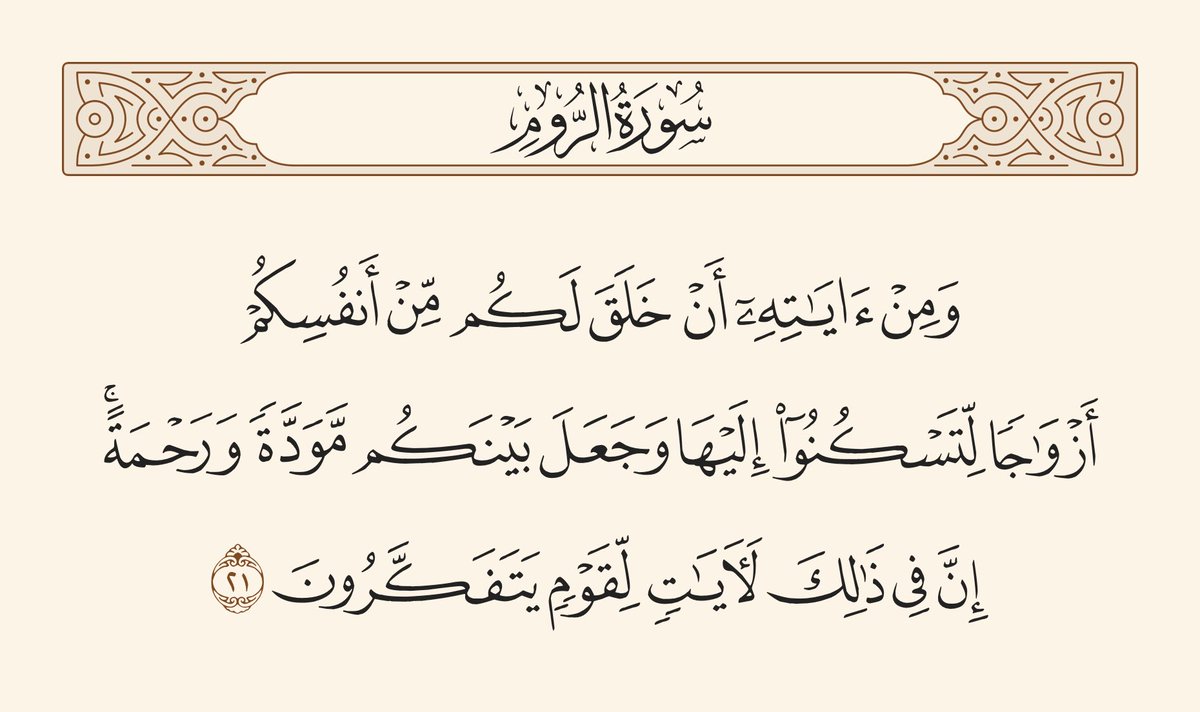 سُورَةُ الرُّومِ
وَمِنْ ءَايَـٰتِهِۦٓ أَنْ خَلَقَ لَكُم مِّنْ أَنفُسِكُمْ
أَزْوَٰجًا لِّتَسْكُنُوٓا۟ إِلَيْهَا وَجَعَلَ بَيْنَكُم مَّوَدَّةً وَرَحْمَةً ۚ
إِنَّ فِى ذَٰلِكَ لَـَٔايَـٰتٍ لِّقَوْمٍ يَتَفَكَّرُونَ ٢١